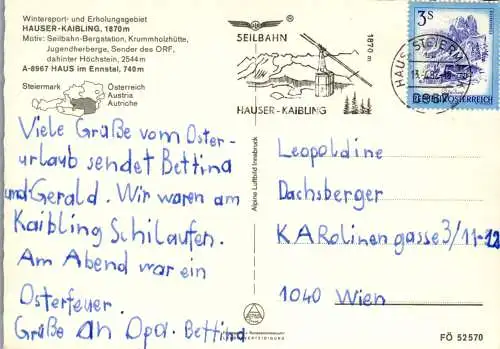 Wintersport- und Erholungsgebiet
HAUSER-KAIBLING, 1870m
Motiv: Seilbahn-Bergstation, Krummholzhütte,
Jugendherberge, Sender des ORF,
dahinter Höchstein, 2544m
A-8967 HAUS im Ennstal, 740m
Steiermark
Österreich
Austria
Autriche
SEILBAHN
1870 m
HAUSER-KAIBLING
3S
HAUS STEIERM
8967
ÖSTERREICH
Viele Grüße vom Oster-
urlaub sendet Bettina
und Gerald. Wir waren am
Kaibling Schilaufen.
Am Abend war ein
Osterfeuer.
Grüße an Opa. Bettina
Alpine Luftbild Innsbruck
Leopoldine
Dachsberger
KARolinengasse 3/11-12
1040 Wien
FÖ 52570